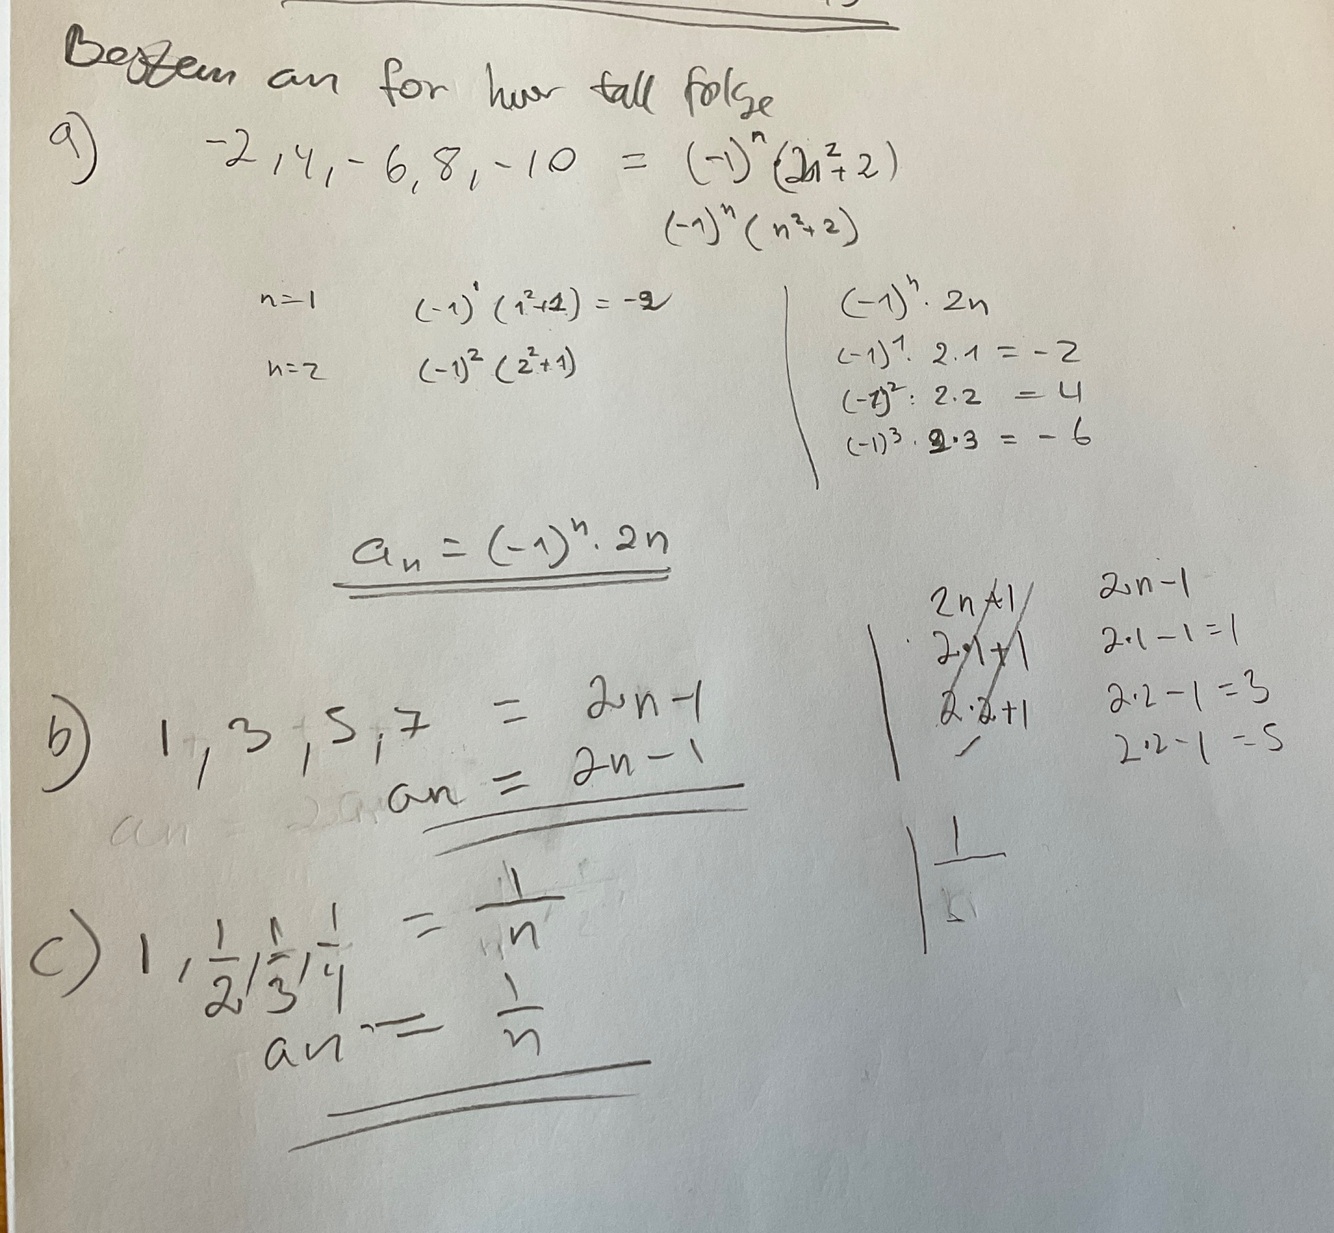 Bestem an for hver tall følge
a) -2, 4, -6, 8, -10 = (-1)^n (2n²+2)
(-1)^n (n²+2)
n=1 (-1)^1 (1²+1) = -2
n=2 (-1)² (2²+1)
(-1)^n · 2n
(-1)^1 · 2·1 = -2
(-1)² · 2·2 = 4
(-1)³ · 2·3 = -6
an = (-1)^n · 2n
b) 1, 3, 5, 7 = 2·n-1
an = 2n-1
2n+1
2·1+1
2·2+1
2·n-1
2·1-1=1
2·2-1=3
2·2-1=5
c) 1, 1/2, 1/3, 1/4 = 1/n
an = 1/n
1